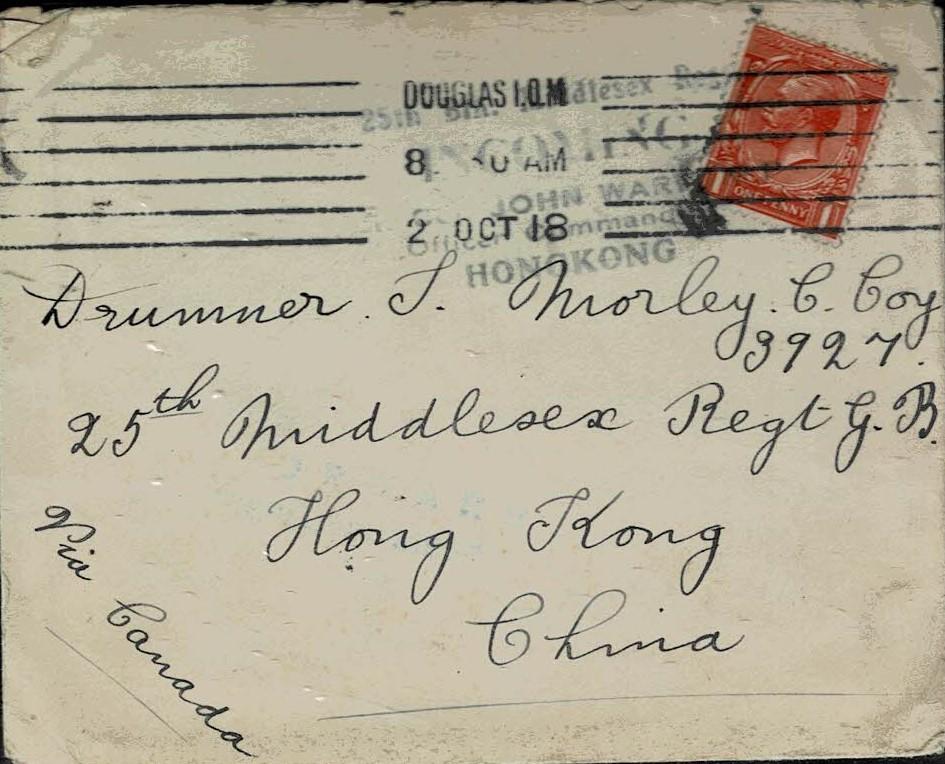 DOUGLAS I.O.M
25th Middlesex
INCOMING
8 AM
JOHN WAR
2 OCT 18
Officer Command
HONGKONG
ONE PENNY
Drummer. J. Morley. C. Coy
3927.
25th Middlesex Regt G.B.
Hong Kong
China
Via Canada